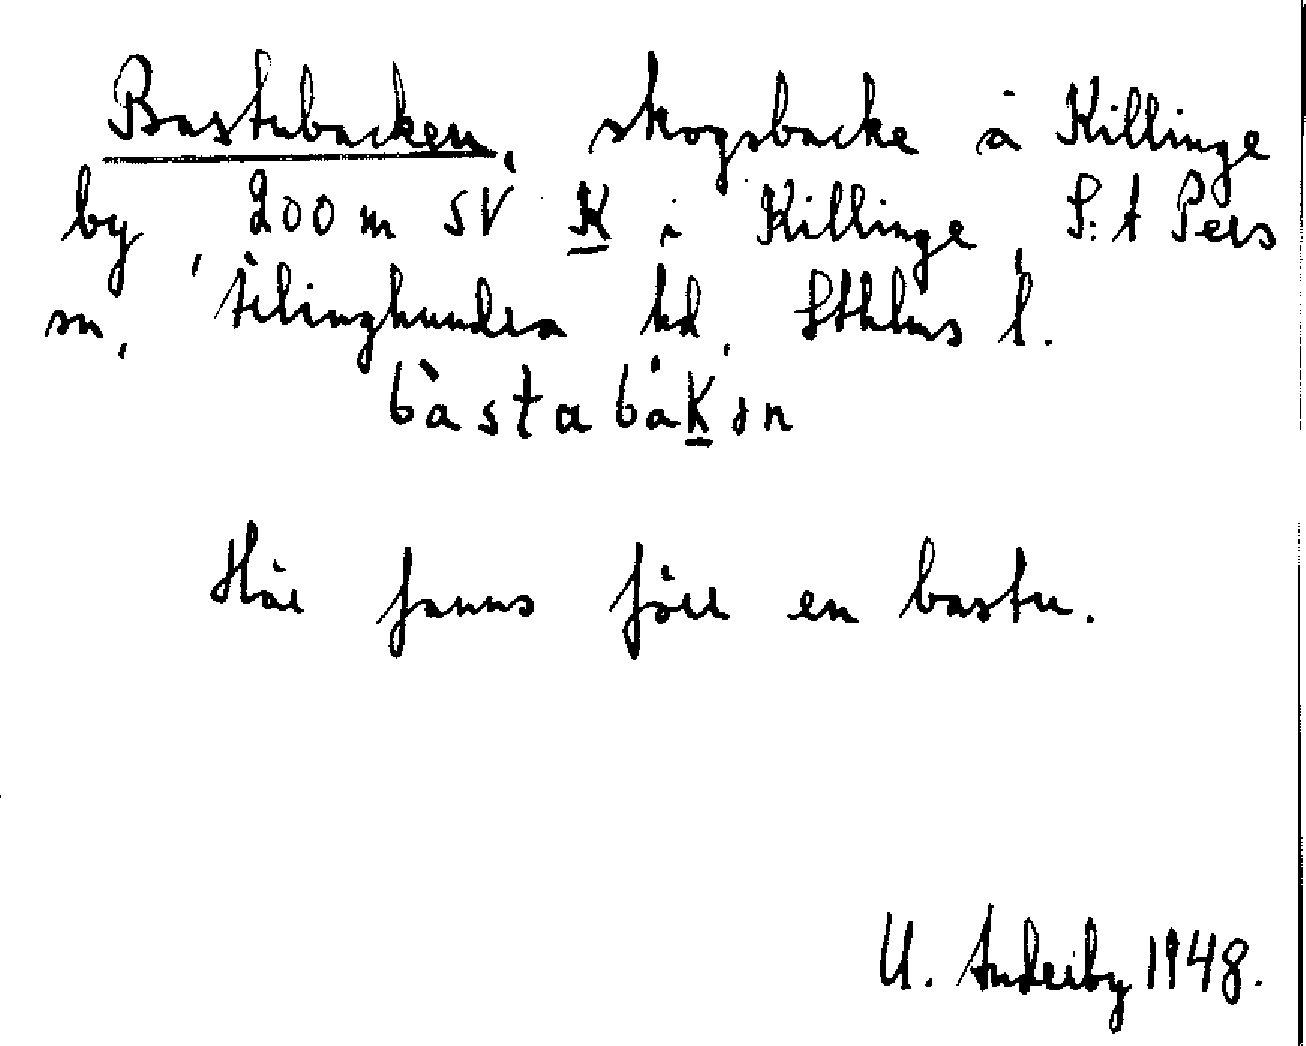 Bastubacken, skogsbacke å Killinge
by, 200 m SV K i Killinge, S:t Pers
sn, Ärlinghundra hd, Sthlms l.
bàstabákɘn
Här fanns förr en bastu.
U. 1948.